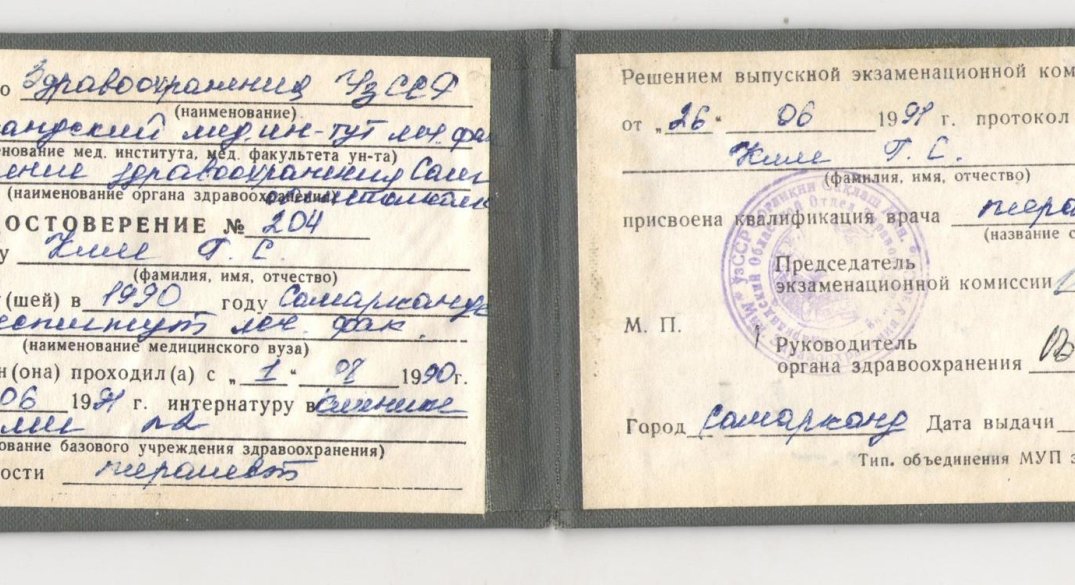 о Здравоохранения УзССР
(наименование)
андский мед.ин-тут леч. фак
енование мед. института, мед. факультета ун-та)
ение здравоохранения Сам
(наименование органа здравоохранения)
ДОСТОВЕРЕНИЕ № 204
у Г. С.
(фамилия, имя, отчество)
(шей) в 1990 году Самарканд
институт леч. фак.
(наименование медицинского вуза)
н (она) проходил(а) с „1“ 1990г.
06 1991 г. интернатуру в клинике
№2
ование базового учреждения здравоохранения)
ости терапевт
Решением выпускной экзаменационной ком
от „26“ 06 1991 г. протокол
Г. С.
(фамилия, имя, отчество)
присвоена квалификация врача тера
(название с
Председатель
экзаменационной комиссии
М. П.
Руководитель
органа здравоохранения
Город Самарканд Дата выдачи
Тип. объединения МУП з